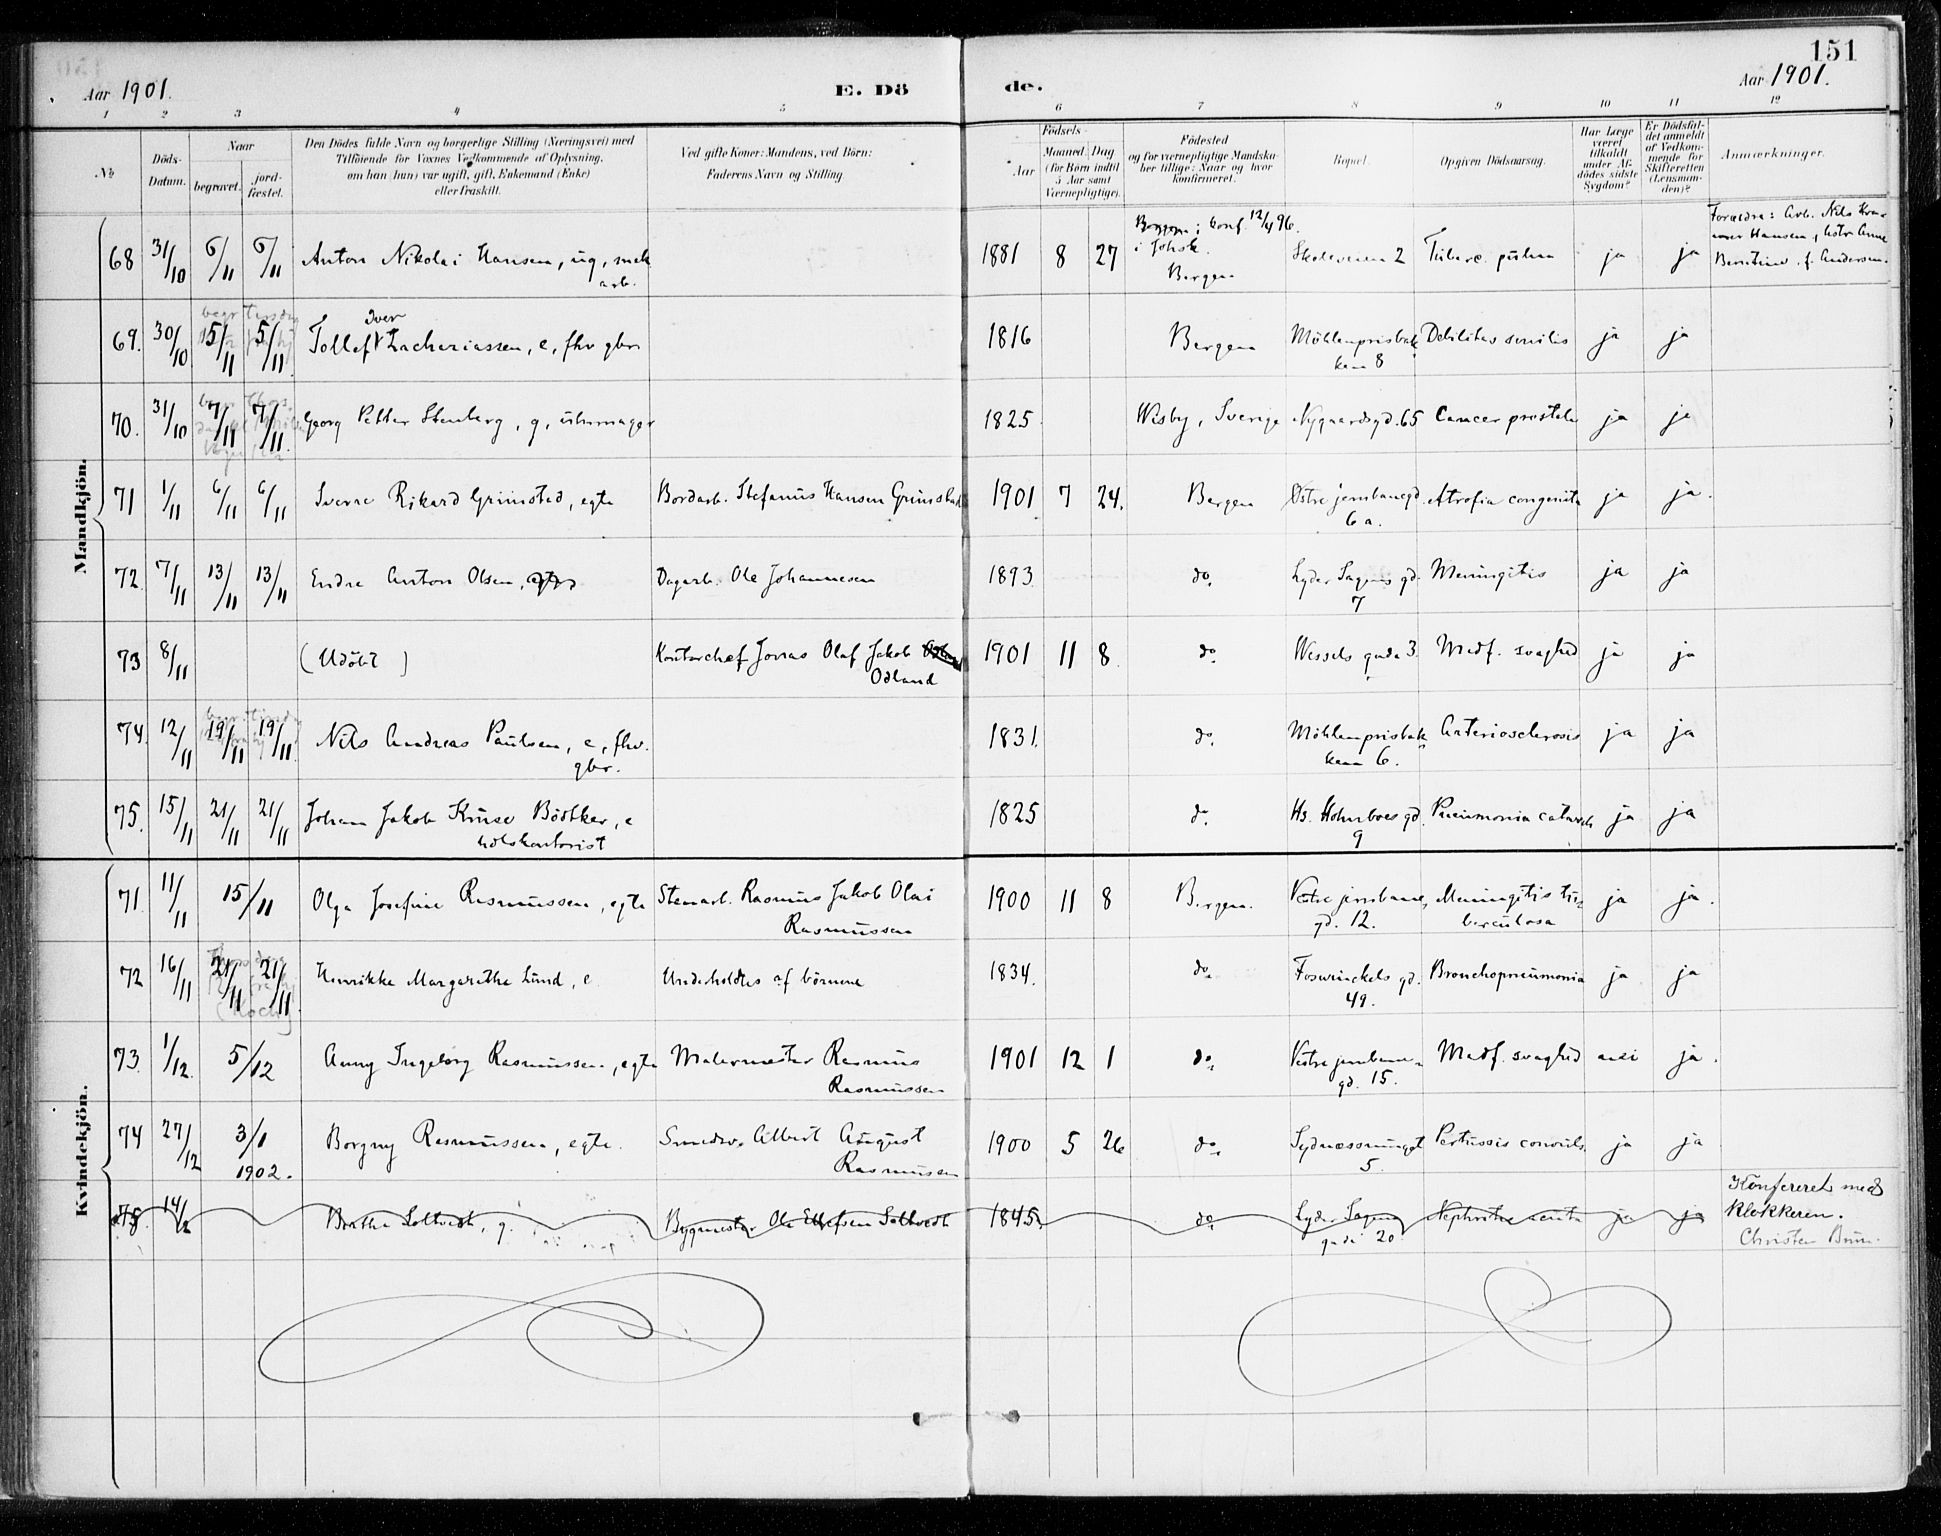 151
Aar 1901. E. Dö de. Aar 1901.
1 2 3 4 5 6 7 8 9 10 11 12
№
Döds-
Datum.
Naar
begravet.
jord-
fæstet.
Den Dödes fulde Navn og borgerlige Stilling (Næringsvei) med
Tilföiende for Voxnes Vedkommende af Oplysning,
om han (hun) var ugift, gift, Enkemand (Enke)
eller fraskilt.
Ved gifte Koner: Mandens, ved Börn:
Faderens Navn og Stilling.
Födsels-
Aar
Maaned. Dag
(for Börn indtil
5 Aar samt
Værnepligtige).
Födested
og for værnepligtige Mandska-
ber tillige: Naar og hvor
konfirmeret.
Bopæl.
Opgiven Dödsaarsag.
Har Læge
været
tilkaldt
under Af-
dödes sidste
Sygdom?
Er Dödsfal-
det anmeldt
af Vedkom-
mende for
Skifteretten
(Lensman-
den)?
Anmærkninger.
Mandkjön.
68 31/10 6/11 6/11 Anton Nikolai Hansen, ug, mek arb. 1881 8 27 konf. 12/4 96. i Johsk. Bergen Skoleveien 2 Tuberc. pulm ja ja Forældre: Arb. Nils Hansen, Berntine f. Andersen.
69. 30/10 5/11 5/11 Tollef Iver Zachariassen, e, fhv gbr 1816 Bergen Möhlenprisbak
ken 8 Debilitas senilis ja ja
70. 31/10 7/11 7/11 Georg Petter Stenberg, g, uhrmager 1825 Wisby, Sverige Nygaardsgd. 65 Cancer prostata ja ja
71 1/11 6/11 6/11 Sverre Rikard Grimstad, egte Bordarb. Stefanus Hansen Grimstad 1901 7 24. Bergen Østre jernbanegd.
6 a. Atrofia congenita ja ja.
72. 7/11 13/11 13/11 Endre Anton Olsen, Dagarb. Ole Johannesen 1893 do. Lyder Sagens gd.
7 Meningitis ja ja
73 8/11 (Udöbt) Kontorchef Jonas Olaf Jakob
Odland 1901 11 8. do. Wessels gade 3. Medf. svaghed ja ja
74. 12/11 19/11 19/11 Nils Andreas Paulsen, e, fhv.
gbr. 1831. do. Möhlenprisbak
ken 6. Arteriosclerosis ja ja
75. 15/11 21/11 21/11 Johan Jakob Kruse Bödtker, e
tolskontorist 1825 do. Hs. Holmboes gd.
9 Pneumonia catarrh ja ja
Kvindekjön.
71. 11/11 15/11 Olga Josefine Rasmussen, egte Stenarb. Rasmus Jakob Olai
Rasmussen 1900 11 8 Bergen. Vestre jernbane
gd. 12. Meningitis tu-
berculosa ja ja.
72 16/11 21/11 21/11 Henrikke Margarethe Lund, e Underholdtes af börnene 1834. do. Fosswinckels gd.
49. Bronchopneumonia ja ja
73. 1/12. 5/12 Anny Ingeborg Rasmussen, egte Malermester Rasmus
Rasmussen 1901 12 1 do. Vestre jernbane
gd. 15. Medf. svaghed nei ja.
74 27/12 3/1
1902. Borgny Rasmussen, egte. Smedsv. Albert August
Rasmussen 1900 5 26 do. Sydnæssmuget
5. Pertussis convuls. ja ja
75. 14/2 Berthe Soltvedt, g. Bygmester Ole Ellefsen Soltvedt 1845. do. Lyder Sagens
gade 20. Nephritis acuta ja ja Konfereret med
klokkeren.
Christen